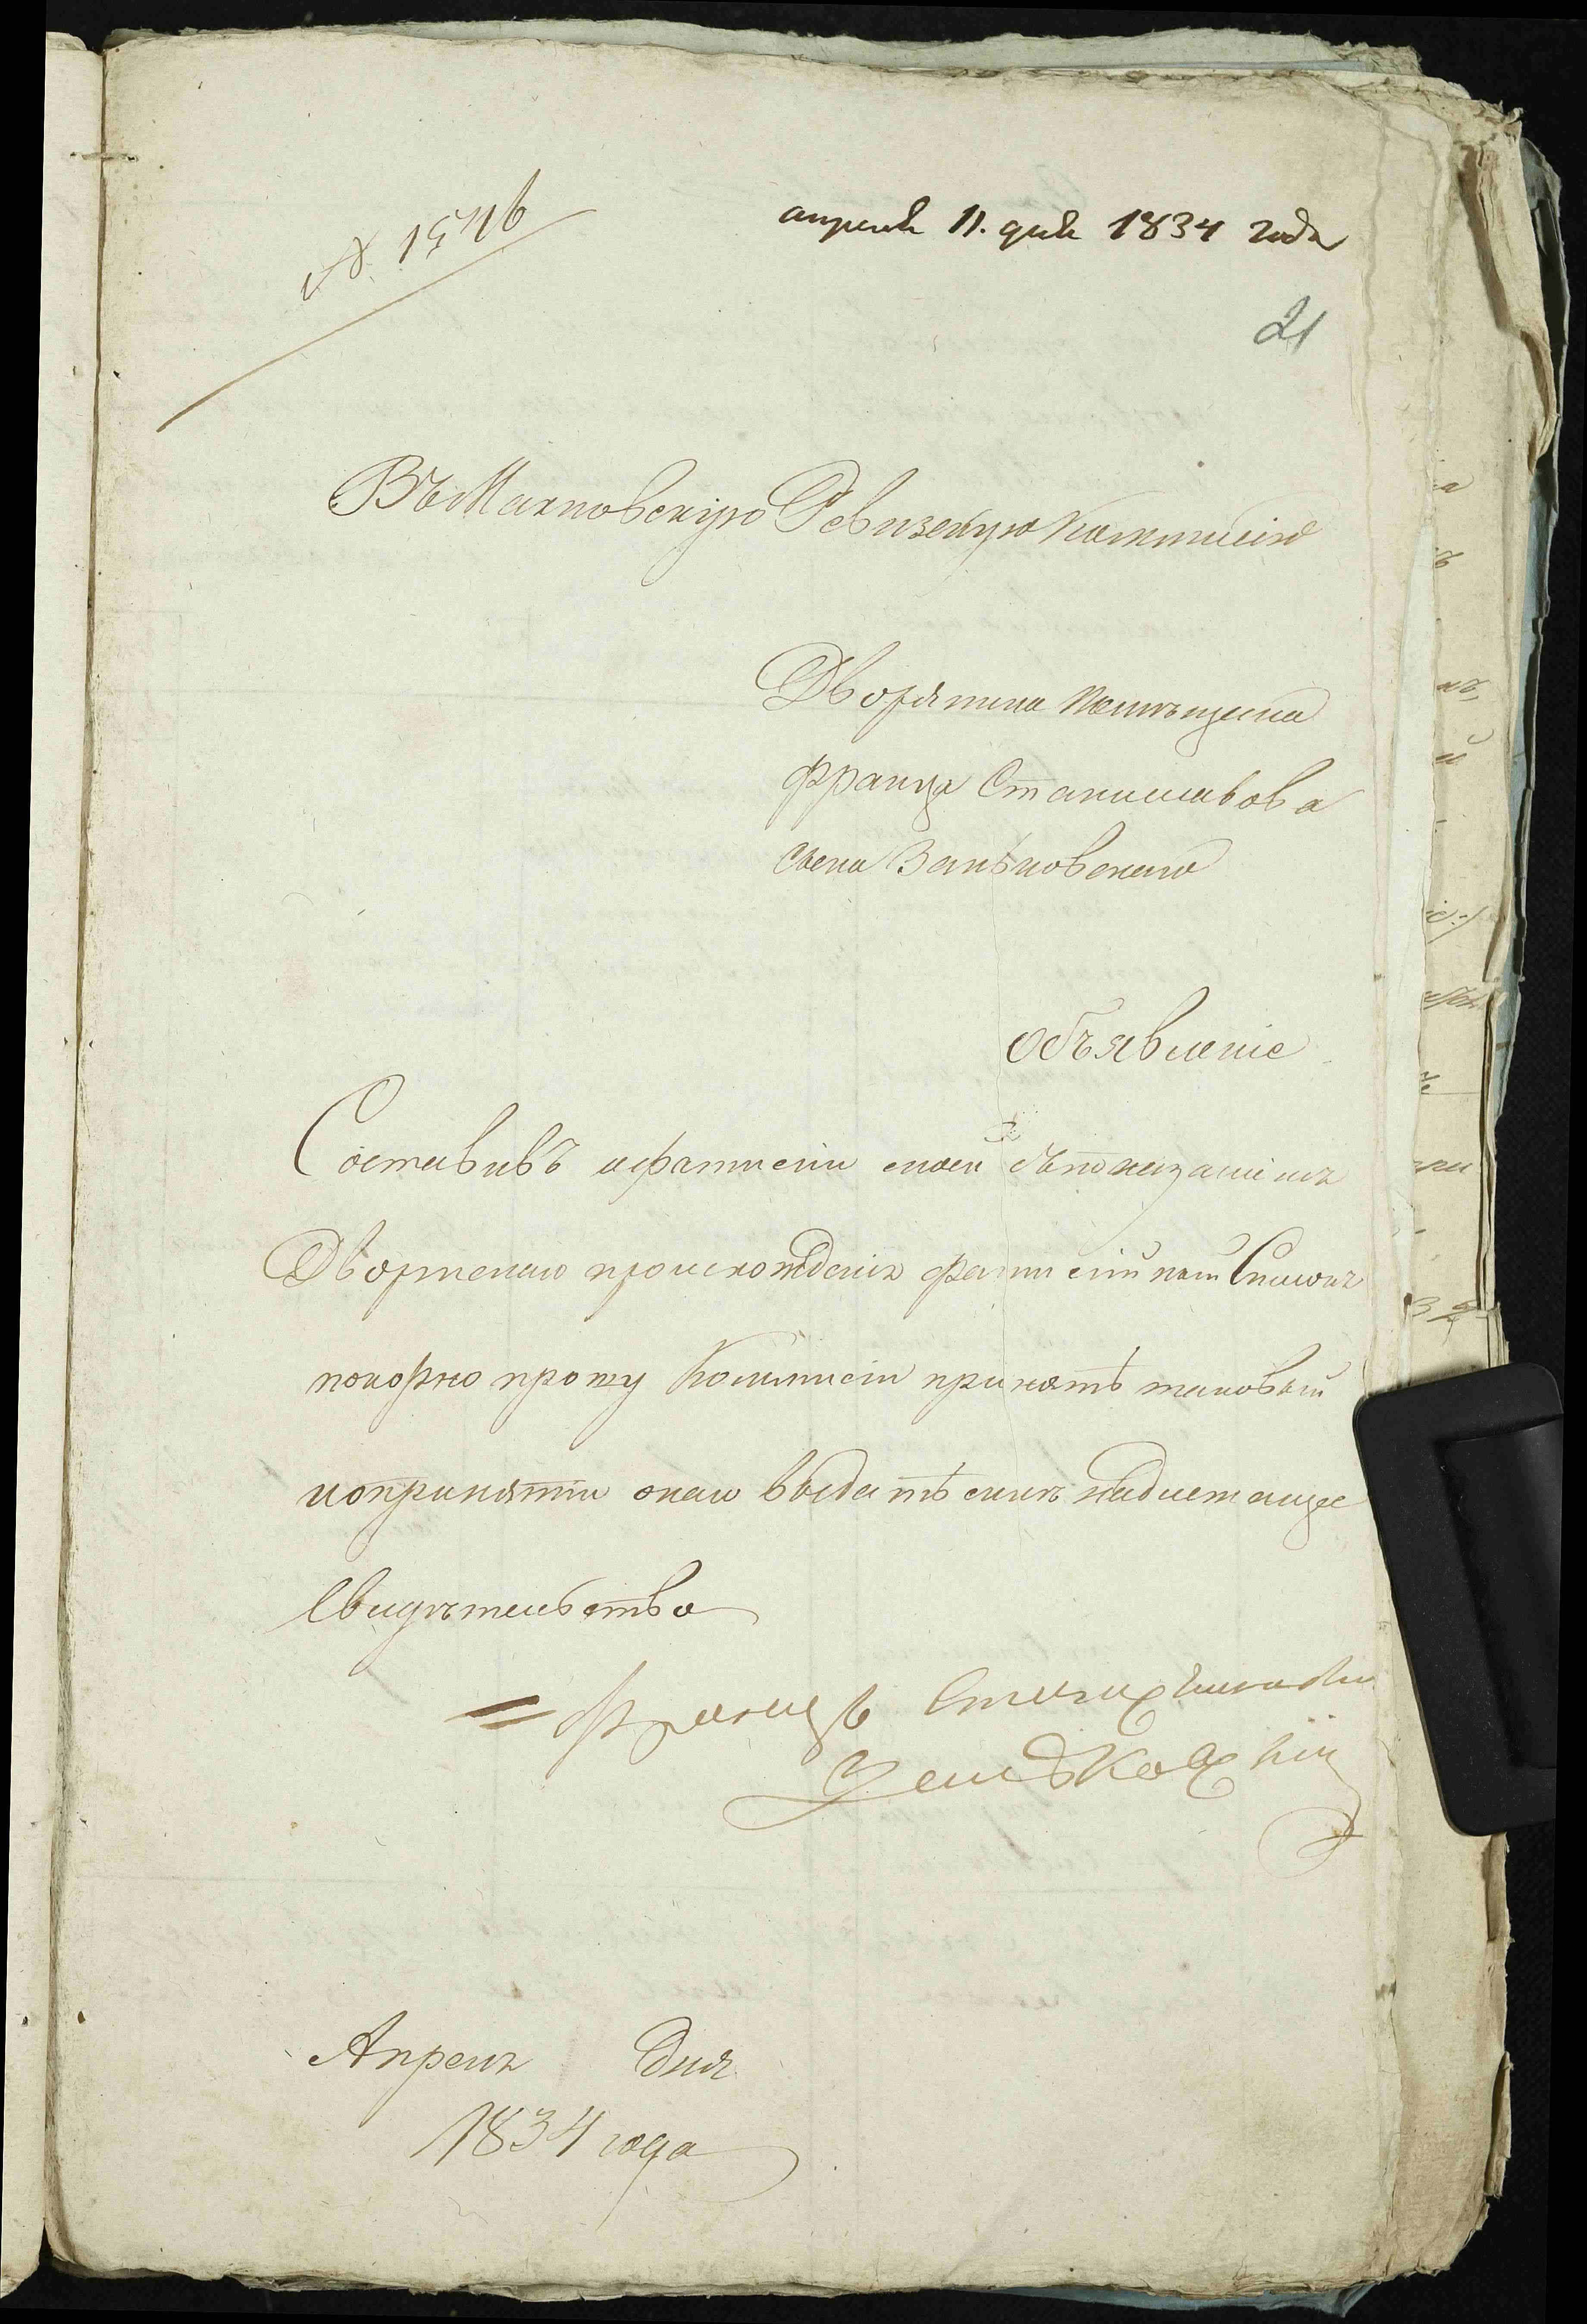 № 1546
апреля 11. дня 1834 года
21
Въ Махновскую Ревизскую Коммисію
Дворянина Помѣщика
Франца Станиславова
сына Зеньковского
Объявленіе
Составивъ о фамиліи моей съ показаніемъ
Дворянского происхожденія фамилный Списокъ
покорно прошу Коммисіи принять таковый
и о принятіи оного выдать мнѣ надлежащее
Свидѣтельство
Францъ
Зеньковскій
Апреля дня
1834 года